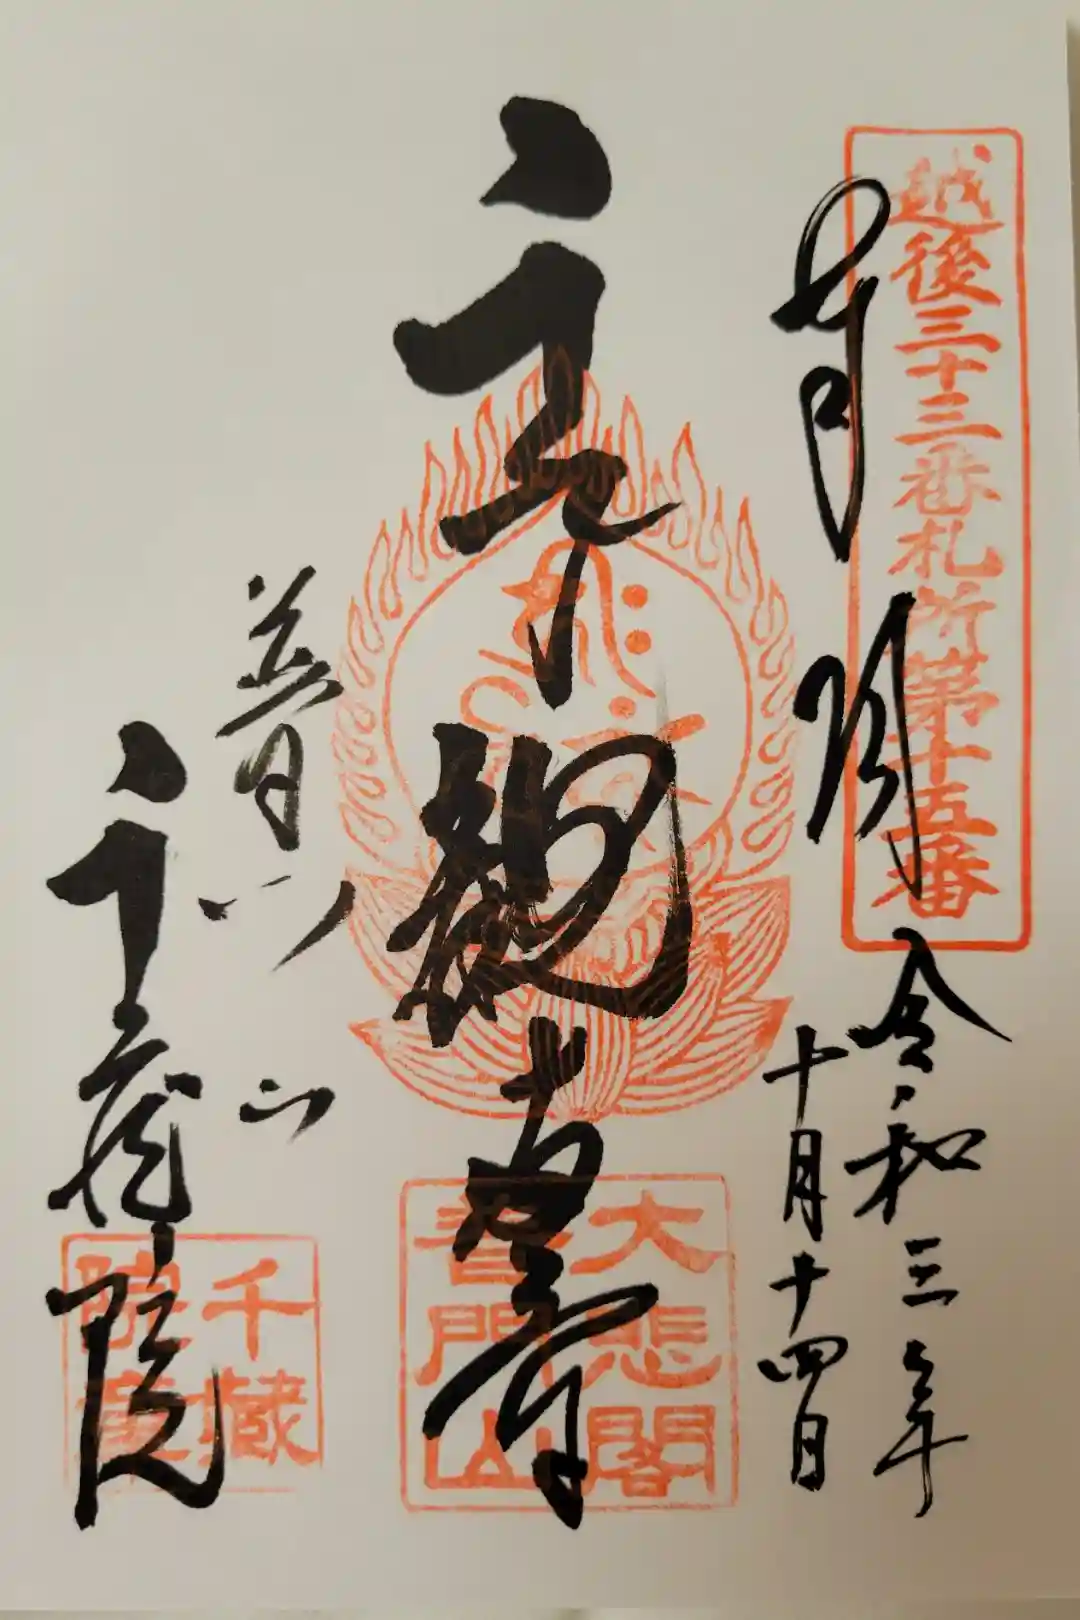 越後三十三番札所第十五番
奉拝
令和三年
十月十四日
千手観世音
大悲閣
普門山
普門山
千蔵院
千蔵
院章